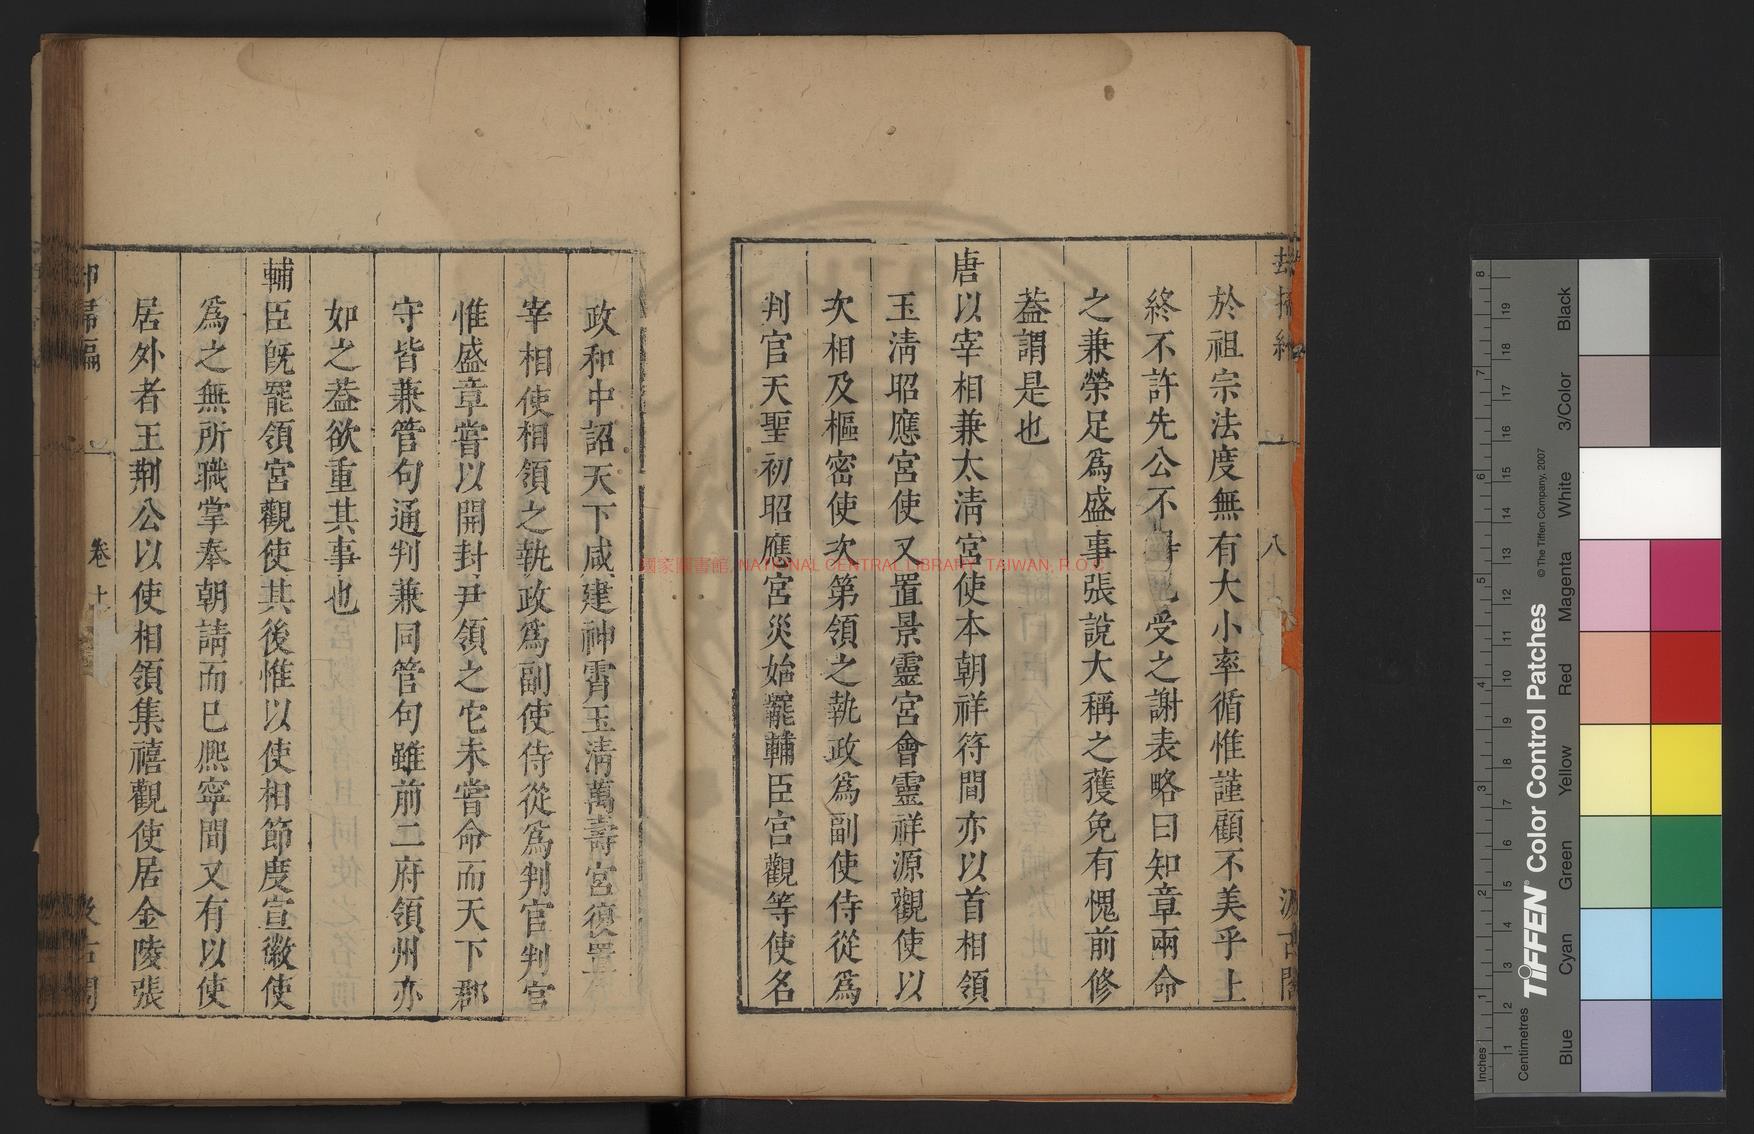 於祖宗法度無有大小率循惟謹顧不美乎上
終不許先公不得已受之謝表略曰知章兩命
之兼榮足爲盛事張說大稱之蒦免有愧前修
葢謂是也
唐以宰相兼太淸宮使本朝祥符間亦以首相領
玉淸昭應宮使又置景靈宮會靈祥源觀使以
次相及樞密使次第領之執政爲副使侍從爲
判官天聖初昭應宮災始罷輔臣宮觀等使名
政和中詔天下咸建神霄玉淸萬壽宮復置
宰相使相領之執政爲副使侍從爲判官判官
惟盛章嘗以開封尹領之它未嘗命而天下郡
守皆兼管句通判兼同管句雖前二府領州亦
如之葢欲重其事也
輔臣旣罷領宮觀使其後惟以使相節度宣徽使
爲之無所職掌奉朝請而已熈寧間又有以使
居外者王荆公以使相領集禧觀使居金陵張
卷十
國家圖書館, NATIONAL CENTRAL LIBRARY, TAIWAN, R.O.C
Inches
Centimetres
TIFFEN Color Control Patches
© The Tiffen Company, 2007
Blue
Cyan
Green
Yellow
Red
Magenta
White
3/Color
Black